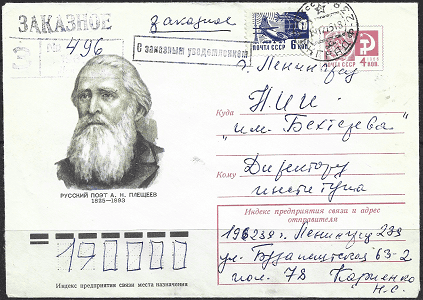 ЗАКАЗНОЕ
заказное
496
С заказным уведомлением
ПОЧТА СССР 6 КОП.
ПОЧТА СССР 4 КОП.
г. Ленинград
Куда НИИ
"им. Бехтерева"
Кому Директору
института
РУССКИЙ ПОЭТ А. Н. ПЛЕЩЕЕВ
1825—1893
Индекс предприятия связи и адрес
отправителя
196239 г. Ленинград 239
ул. Будапештская 63-2
пом. 78
Н-С.
190000
Индекс предприятия связи места назначения